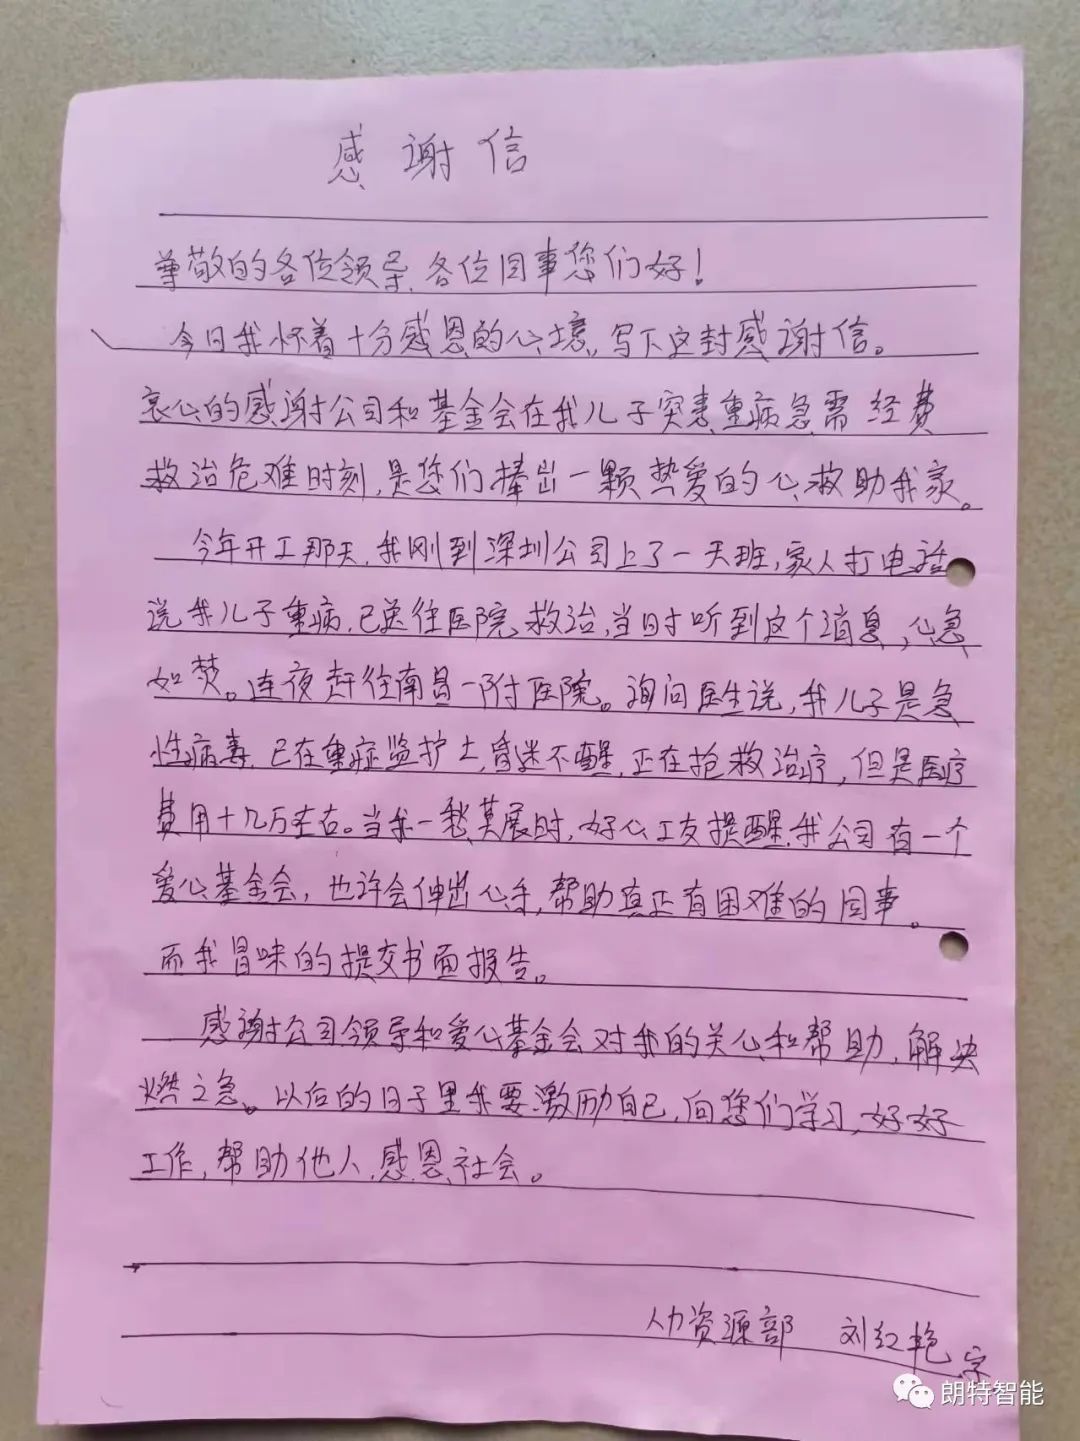 感谢信
尊敬的各位领导,各位同事您们好!
今日我怀着十分感恩的心境,写下这封感谢信。
衷心的感谢公司和基金会在我儿子突患重病急需经费
救治危难时刻,是您们捧出一颗热爱的心救助我家。
今年开工那天,我刚到深圳公司上了一天班,家人打电话
说我儿子重病,已送往医院救治,当时听到这个消息,心急
如焚。连夜赶往南昌一附医院。询问医生说,我儿子是急
性病毒,已在重症监护士,昏迷不醒,正在抢救治疗,但是医疗
费用十几万左右。当我一愁莫展时,好心工友提醒,我公司有一个
爱心基金会,也许会伸出心手,帮助真正有困难的同事。
而我冒昧的提交书面报告。
感谢公司领导和爱心基金会对我的关心和帮助,解决
燃之急。以后的日子里我要激励自己,向您们学习,好好
工作,帮助他人,感恩社会。
人力资源部 刘红艳
朗特智能